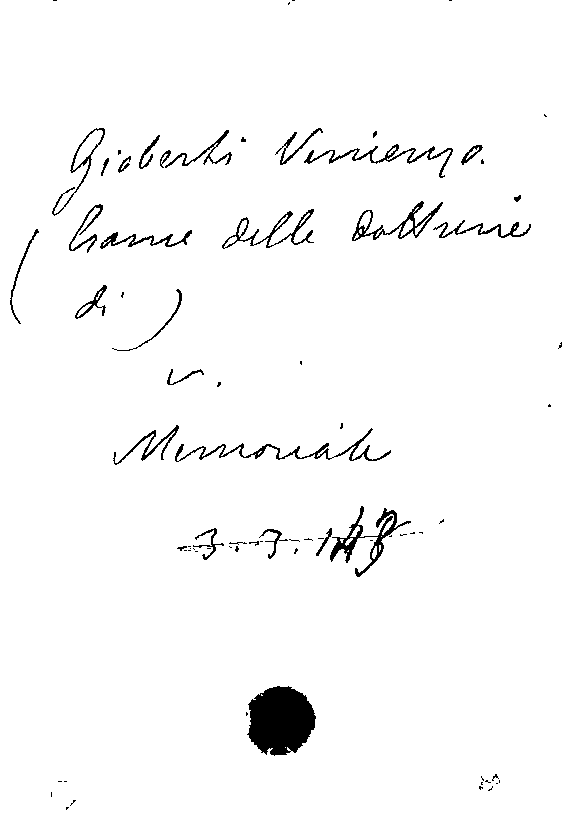 Gioberti Vincenzo.
(Esame delle dottrine
di)
v.
Memoriale
3.3.